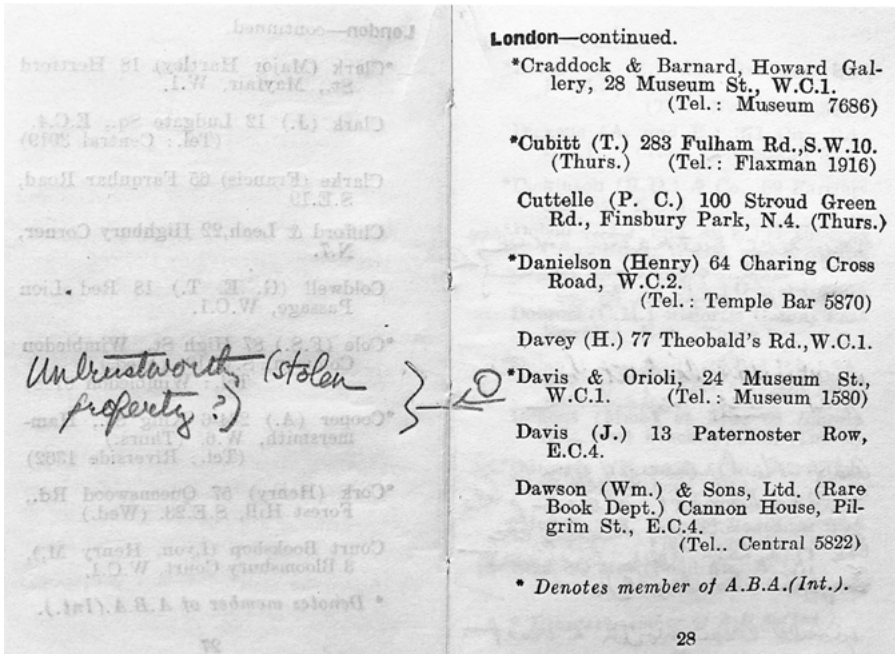 Untrustworthy (stolen
property?)
London—continued.
*Craddock & Barnard, Howard Gal-
lery, 28 Museum St., W.C.1.
(Tel.: Museum 7686)
*Cubitt (T.) 283 Fulham Rd.,S.W.10.
(Thurs.) (Tel.: Flaxman 1916)
Cuttelle (P. C.) 100 Stroud Green
Rd., Finsbury Park, N.4. (Thurs.)
*Danielson (Henry) 64 Charing Cross
Road, W.C.2.
(Tel.: Temple Bar 5870)
Davey (H.) 77 Theobald's Rd.,W.C.1.
*Davis & Orioli, 24 Museum St.,
W.C.1. (Tel.: Museum 1580)
Davis (J.) 13 Paternoster Row,
E.C.4.
Dawson (Wm.) & Sons, Ltd. (Rare
Book Dept.) Cannon House, Pil-
grim St., E.C.4.
(Tel.. Central 5822)
* Denotes member of A.B.A.(Int.).
28